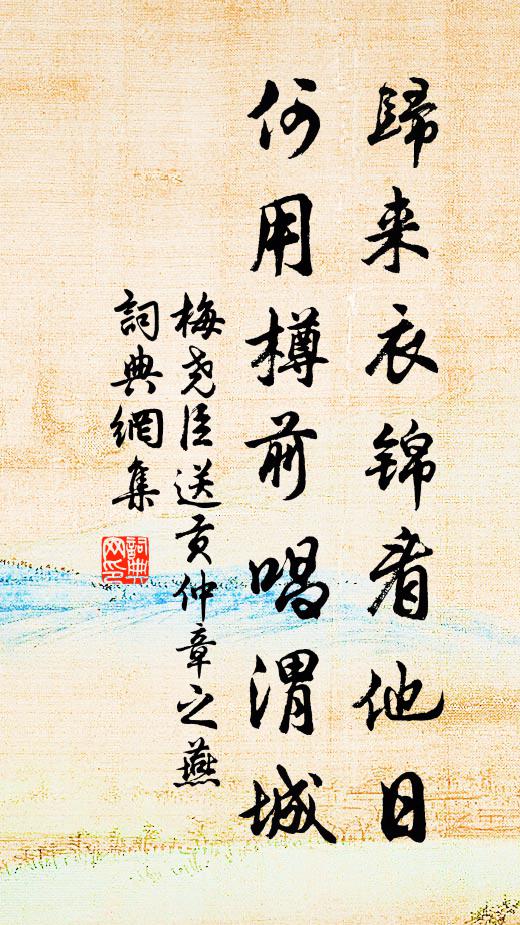 歸来衣錦看他日
何用樽前唱渭城
梅尧臣送贡仲章之燕
詞典網集
詞典网印